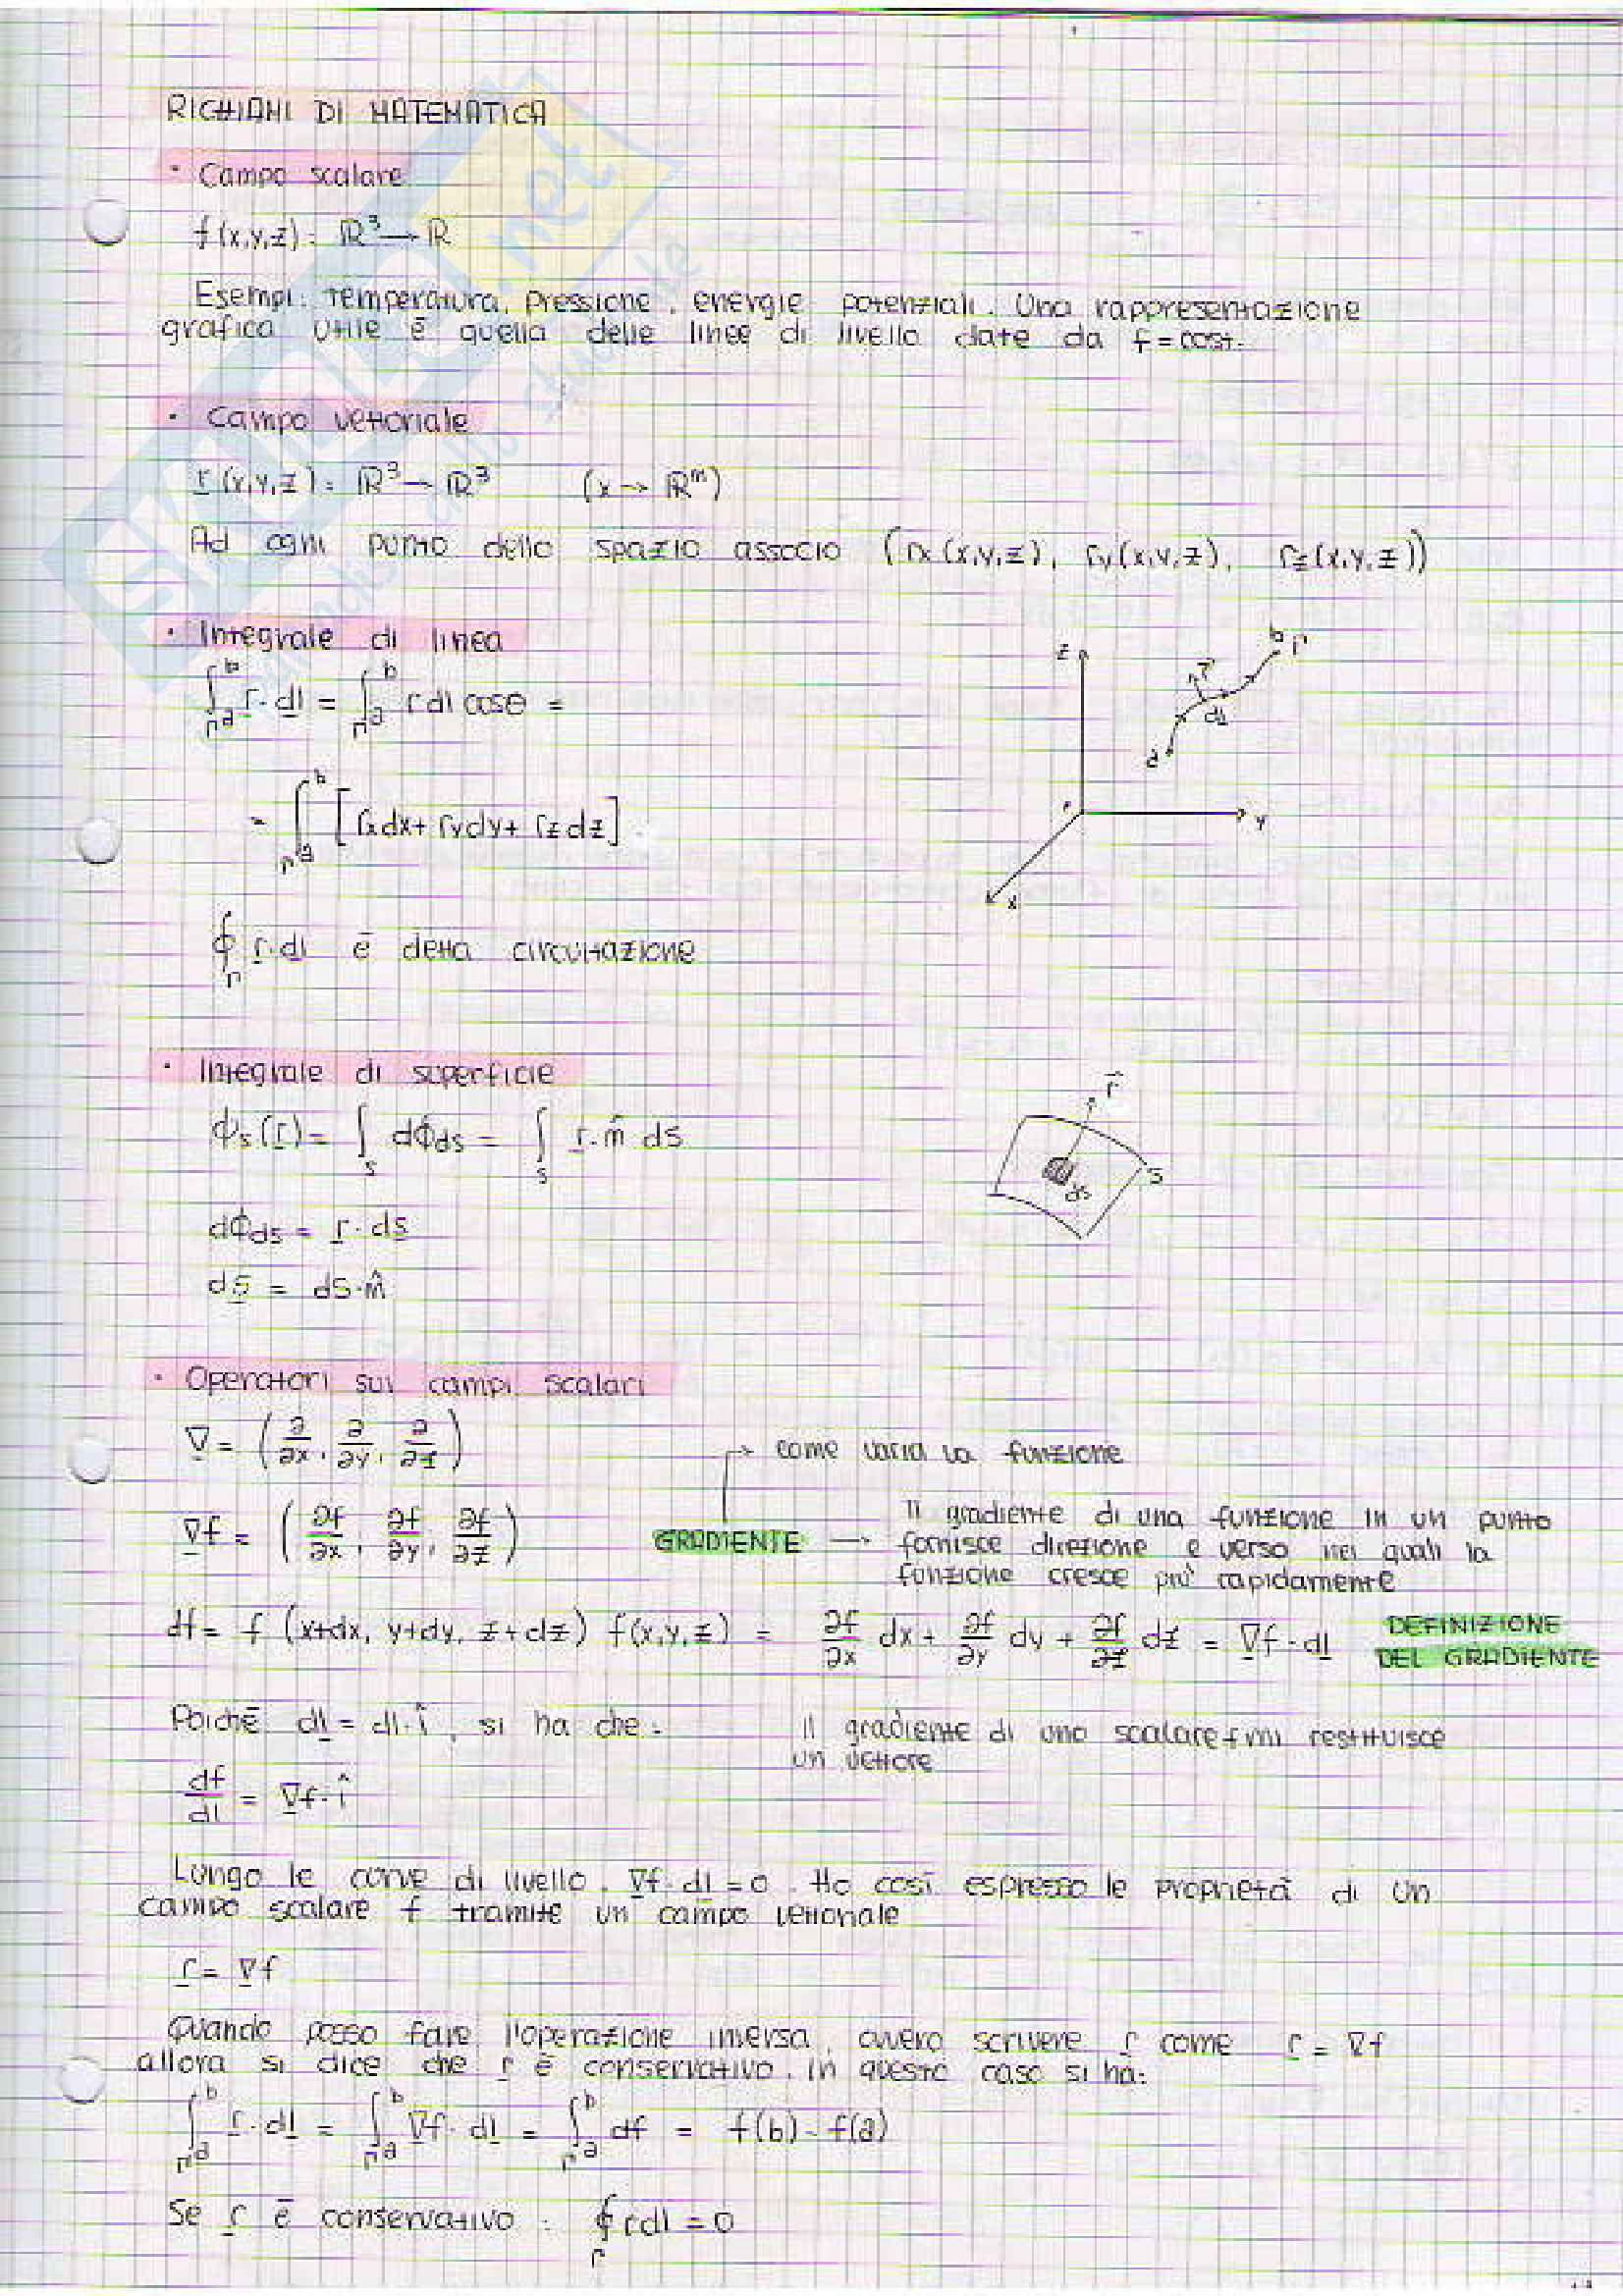 RICHIAMI DI MATEMATICA
• Campo scalare
f(x,y,z): ℝ³ → ℝ
Esempi: temperatura, pressione, energie potenziali. Una rappresentazione
grafica utile è quella delle linee di livello date da f = cost.
• Campo vettoriale
r(x,y,z): ℝ³ → ℝ³ (x → ℝⁿ)
Ad ogni punto dello spazio associo (rx(x,y,z), ry(x,y,z), rz(x,y,z))
• Integrale di linea
∫_Γa^b r·dl = ∫_Γa^b r dl cosθ =
= ∫_Γa^b [rx dx + ry dy + rz dz]
z b Γ
r dl
a
y
x
∮_Γ r·dl è detta circuitazione
• Integrale di superficie
Φs(r) = ∫_S dΦds = ∫_S r·n̂ dS
dΦds = r·ds
ds = dS·n̂
r
S
ds
• Operatori sui campi scalari
∇ = (∂/∂x, ∂/∂y, ∂/∂z)
→ come varia la funzione
∇f = (∂f/∂x, ∂f/∂y, ∂f/∂z)
GRADIENTE → Il gradiente di una funzione in un punto
fornisce direzione e verso nei quali la
funzione cresce più rapidamente
df = f(x+dx, y+dy, z+dz) f(x,y,z) = ∂f/∂x dx + ∂f/∂y dy + ∂f/∂z dz = ∇f·dl
DEFINIZIONE
DEL GRADIENTE
Poiché dl = dl·î, si ha che:
Il gradiente di uno scalare f mi restituisce
un vettore
df/dl = ∇f·î
Lungo le curve di livello, ∇f·dl = 0. Ho così espresso le proprietà di un
campo scalare f tramite un campo vettoriale
r = ∇f
Quando posso fare l'operazione inversa, ovvero scrivere r come r = ∇f
allora si dice che r è conservativo. In questo caso si ha:
∫_Γa^b r·dl = ∫_Γa^b ∇f·dl = ∫_Γa^b df = f(b) - f(a)
Se r è conservativo: ∮_Γ r dl = 0